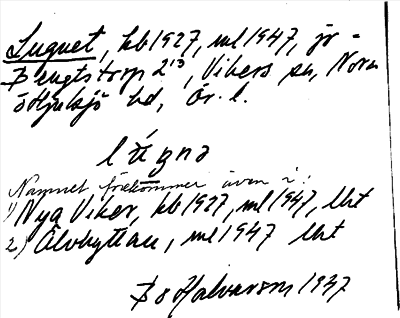 Lugnet, kb 1927, ml 1947, jr -
Bengtstorp 2¹³, Vikers sn, Nora
o Hjulsjö hd, Ör. l.
lúgnə
Namnet förekommer även i:
1) Nya Viker, kb 1927, ml 1947, lht
2) Älvhyttan, ml 1947 lht
B o Halvarson 1937